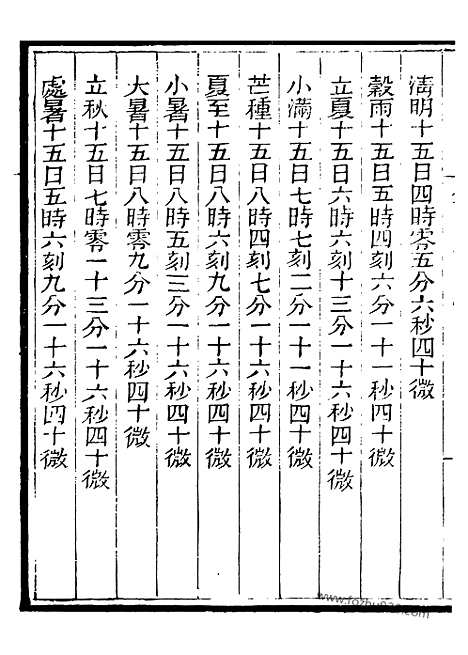 淸明十五日四時零五分六秒四十微
穀雨十五日五時四刻六分一十一秒四十微
立夏十五日六時六刻十三分一十六秒四十微
小滿十五日七時七刻二分一十一秒四十微
芒種十五日八時四刻七分一十六秒四十微
夏至十五日八時六刻九分一十六秒四十微
小暑十五日八時五刻三分一十六秒四十微
大暑十五日八時零九分一十六秒四十微
立秋十五日七時零一十三分一十六秒四十微
處暑十五日五時六刻九分一十六秒四十微